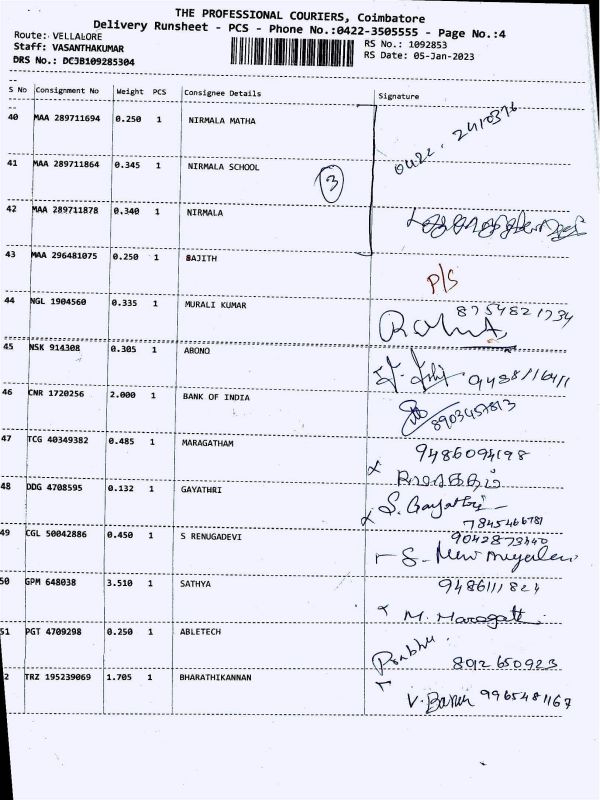 THE PROFESSIONAL COURIERS, Coimbatore
Delivery Runsheet - PCS - Phone No.:0422-3505555 - Page No.:4
Route: VELLALORE
Staff: VASANTHAKUMAR
DRS No.: DCJB109285304
RS No.: 1092853
RS Date: 05-Jan-2023
S No Consignment No Weight PCS Consignee Details Signature
40 MAA 289711694 0.250 1 NIRMALA MATHA 0422. 2410376
41 MAA 289711864 0.345 1 NIRMALA SCHOOL
3
42 MAA 289711878 0.340 1 NIRMALA
43 MAA 296481075 0.250 1 BAJITH P/S
44 NGL 1904560 0.335 1 MURALI KUMAR 8754821734
45 NSK 914308 0.305 1 ABONO
46 CNR 1720256 2.000 1 BANK OF INDIA 8903457813
47 TCG 40349382 0.485 1 MARAGATHAM 9486094198
மரகதம்
48 DDG 4708595 0.132 1 GAYATHRI S. Gayathri
7845466781
49 CGL 50042886 0.450 1 S RENUGADEVI
50 GPM 648038 3.510 1 SATHYA 9486111824
51 PGT 4709298 0.250 1 ABLETECH Prabhu. 8012650923
2 TRZ 195239069 1.705 1 BHARATHIKANNAN 9965481167